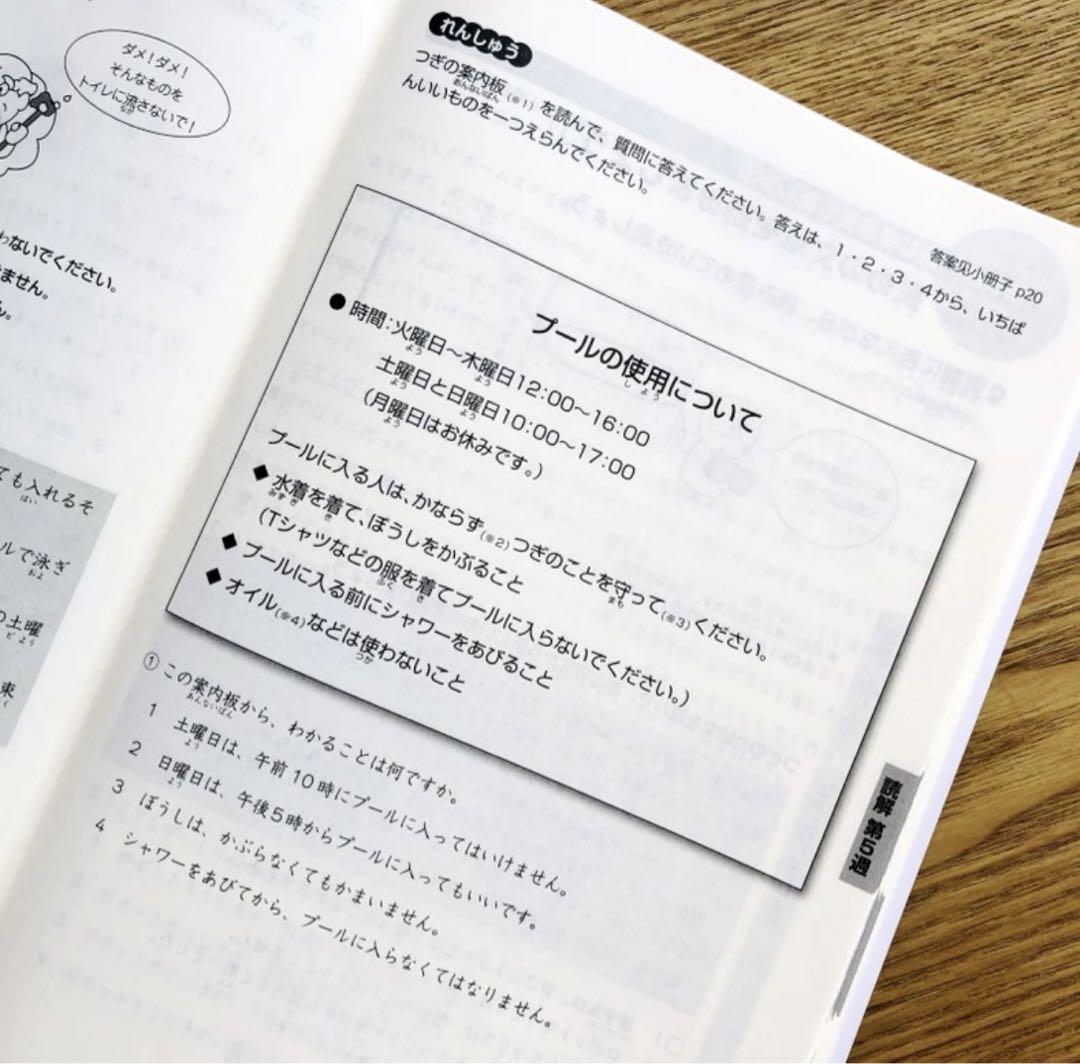 ダメ!ダメ!
そんなものを
トイレに流さないで!
なが
わないでください。
ません。
ん。
ても入れるそ
はい
ルで泳ぎ
およ
の土曜
どよう
東
れんしゅう
つぎの案内板(※1)を読んで、質問に答えてください。答えは、1・2・3・4から、いちば
あんないばん
んいいものを一つえらんでください。
答案见小册子 p20
プールの使用について
しよう
●時間:火曜日~木曜日12:00~16:00
よう よう
土曜日と日曜日10:00~17:00
よう よう
(月曜日はお休みです。)
よう
プールに入る人は、かならず(※2)つぎのことを守って(※3)ください。
まも
◆水着を着て、ぼうしをかぶること
みずぎ き
(Tシャツなどの服を着てプールに入らないでください。)
ふく き
◆プールに入る前にシャワーをあびること
◆オイル(※4)などは使わないこと
つか
①この案内板から、わかることは何ですか。
あんないばん
1 土曜日は、午前10時にプールに入ってはいけません。
よう
2 日曜日は、午後5時からプールに入ってもいいです。
よう
3 ぼうしは、かぶらなくてもかまいません。
4 シャワーをあびてから、プールに入らなくてはなりません。
読解 第5週